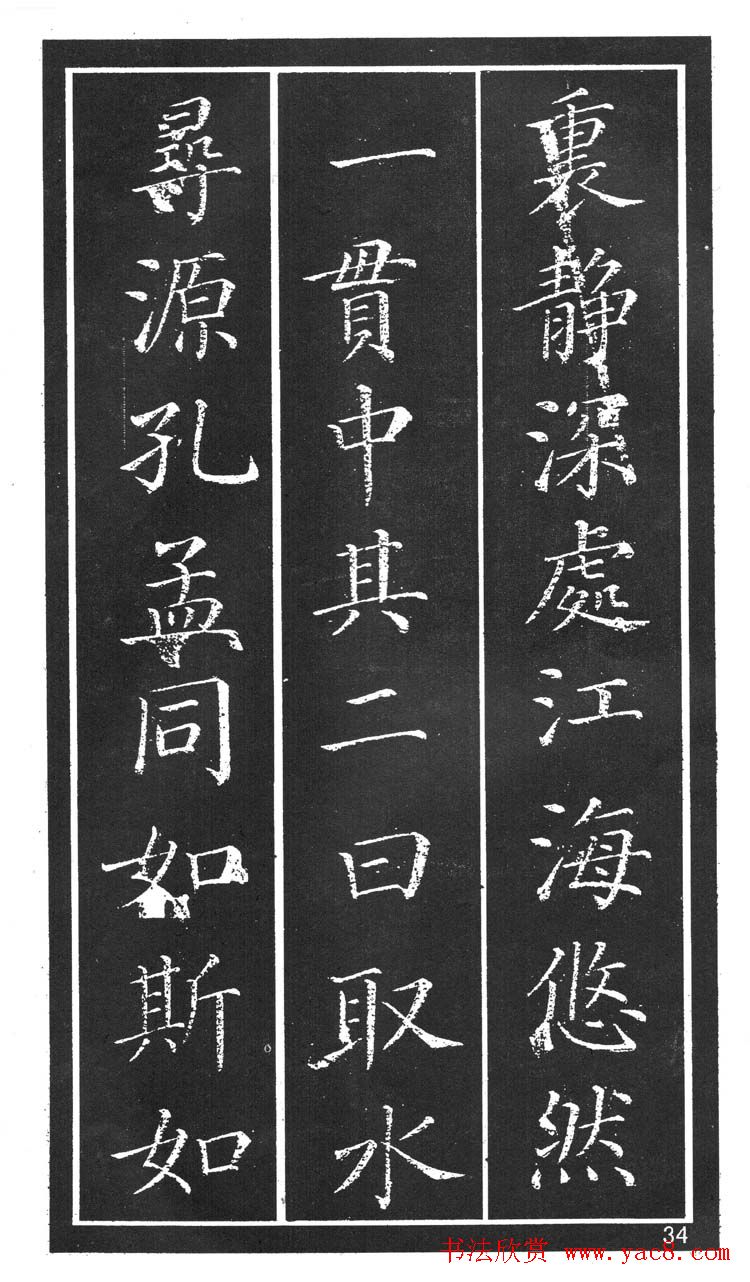 裏靜深處江海悠然
一貫中其二曰取水
尋源孔孟同如斯如
34
书法欣赏 www.yac8.com